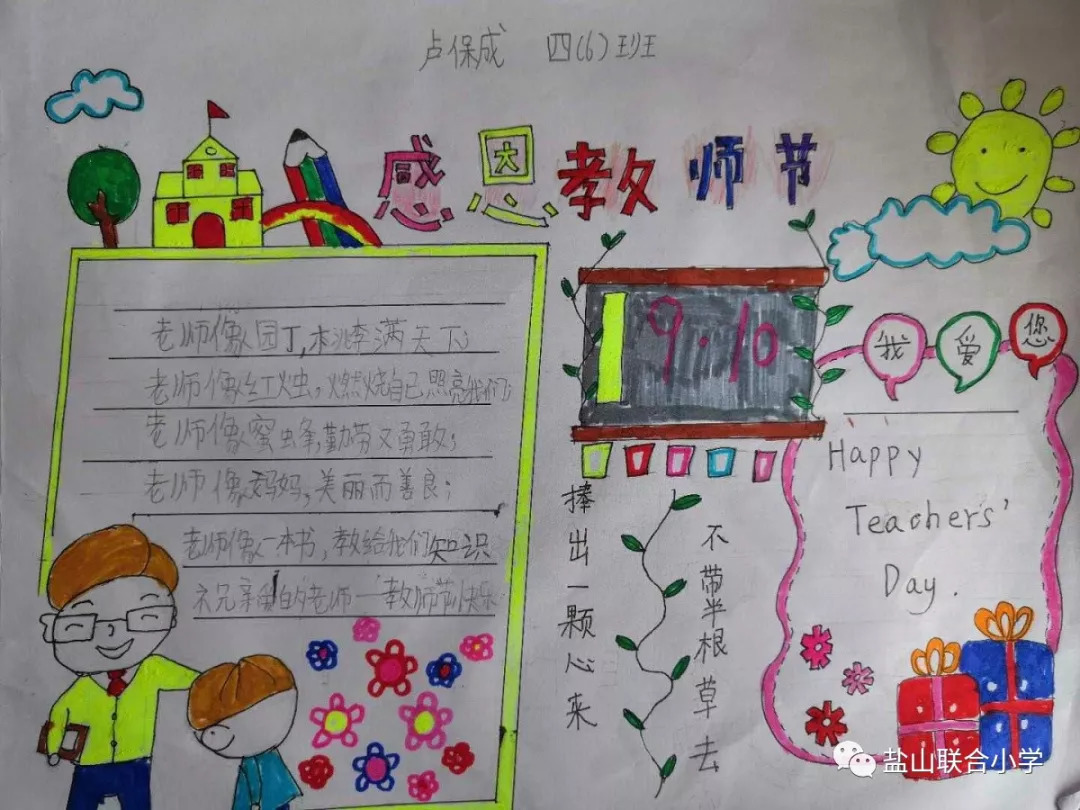 卢保成 四(6)班
感恩教师节
老师像园丁,桃李满天下;
老师像红烛,燃烧自己照亮我们;
老师像蜜蜂,勤劳又勇敢;
老师像妈妈,美丽而善良;
老师像一本书,教给我们知识
祝亲爱的老师一教师节快乐
9.10
捧出一颗心来
不带半根草去
我爱您
Happy
Teachers'
Day.
盐山联合小学